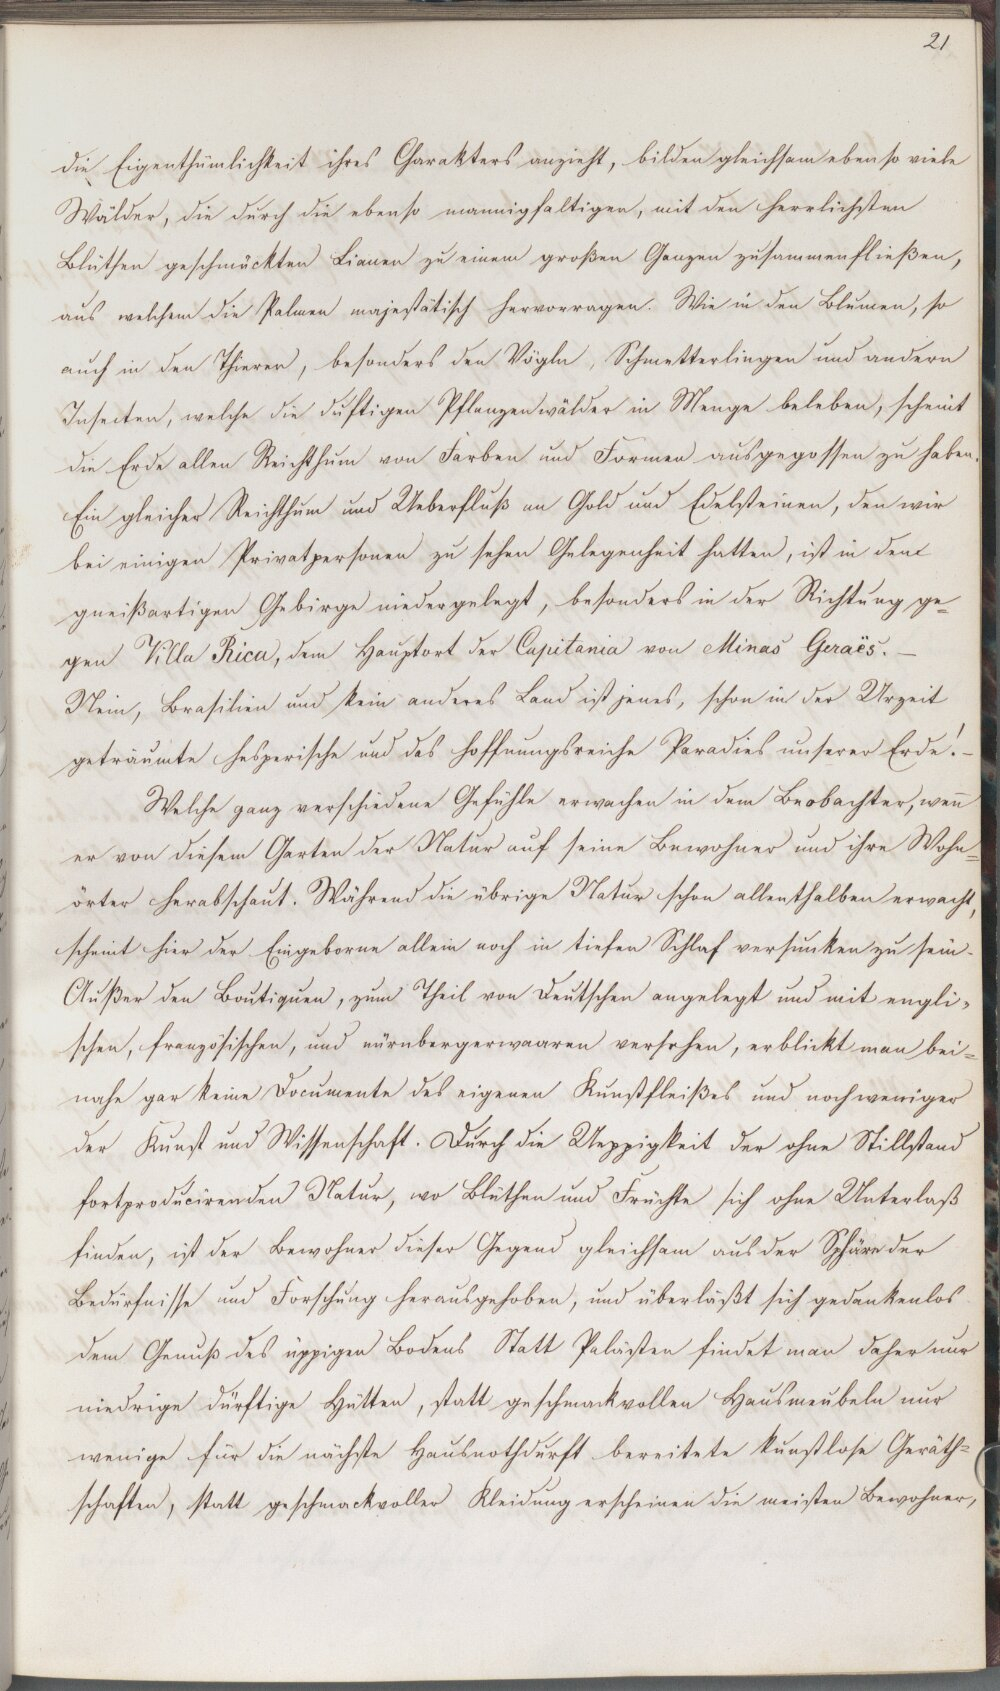 21
die Eigenthümlichkeit ihres Charakters anzieht, bilden gleichsam eben so viele
Wälder, die durch die ebenso mannigfaltigen, mit den herrlichsten
Blüthen geschmückten Lianen zu einem großen Ganzen zusammenfließen,
aus welchem die Palmen majestätisch hervorragen. Wie in den Blumen, so
auch in den Thieren, besonders den Vögln, Schmetterlingen und andern
Insecten, welche die duftigen Pflanzenwälder in Menge beleben, scheint
die Erde allen Reichthum von Farben und Formen ausgegossen zu haben.
Ein gleicher Reichthum und Ueberfluß an Gold und Edelsteinen, den wir
bei einigen Privatpersonen zu sehen Gelegenheit hatten, ist in dem
gneißartigen Gebirge niedergelegt, besonders in der Richtung ge-
gen Villa Rica, dem Hauptort der Capitania von Minas Geraës. —
Nein, Brasilien und kein anderes Land ist jenes, schon in der Urzeit
geträumte hesperische und das hoffnungsreiche Paradies unserer Erde! —
Welche ganz verschiedene Gefühle erwachen in dem Beobachter, wenn̄
er von diesem Garten der Natur auf seine Bewohner und ihre Wohn-
örter herabschaut. Während die übrige Natur schon allenthalben erwacht,
scheint hier der Eingeborne allein noch in tiefen Schlaf versunken zu sein.
Außer den Boutiquen, zum Theil von Deutschen angelegt und mit engli-
schen, französischen, und nürnbergerwaaren versehen, erblickt man bei-
nahe gar keine Documente des eigenen Kunstfleißes und noch weniger
der Kunst und Wissenschaft. Durch die Ueppigkeit der ohne Stillstand
fortproducirenden Natur, wo Blüthen und Früchte sich ohne Unterlaß
finden, ist der Bewohner dieser Gegend gleichsam aus der Sphäre der
Bedürfnisse und Forschung herausgehoben, und überläßt sich gedankenlos
dem Genuß des üppigen Bodens Statt Palästen findet man daher nur
niedrige dürftige Hütten, statt geschmackvollen Hausmeubeln nur
wenige für die nächste Hausnothdurft bereitete kunstlose Geräth-
schaften, statt geschmackvoller Kleidung erscheinen die meisten Bewohner,